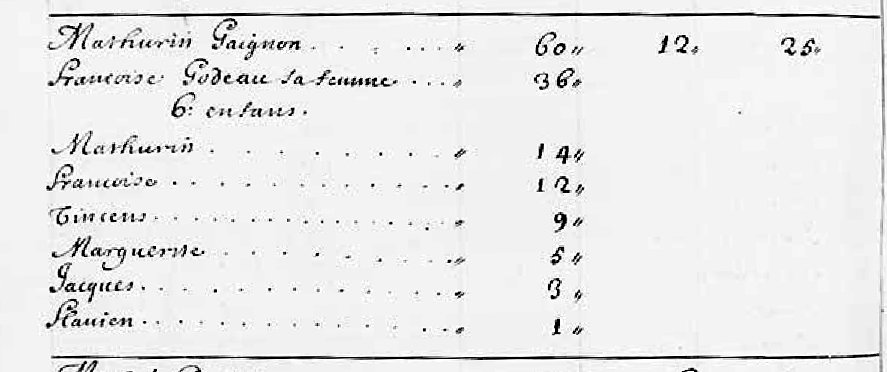 Mathurin Gaignon . . . . . . „ 60 „ 12 „ 25 „
francoise Godeau sa femme . . . „ 36 „
6: enfans.
Mathurin . . . . . . . . „ 14 „
francoise . . . . . . . . . „ 12 „
Vincens . . . . . . . . . . „ 9 „
Marguerite . . . . . . . „ 5 „
Jacques . . . . . . . . . . „ 3 „
flauien . . . . . . . . . . „ 1 „